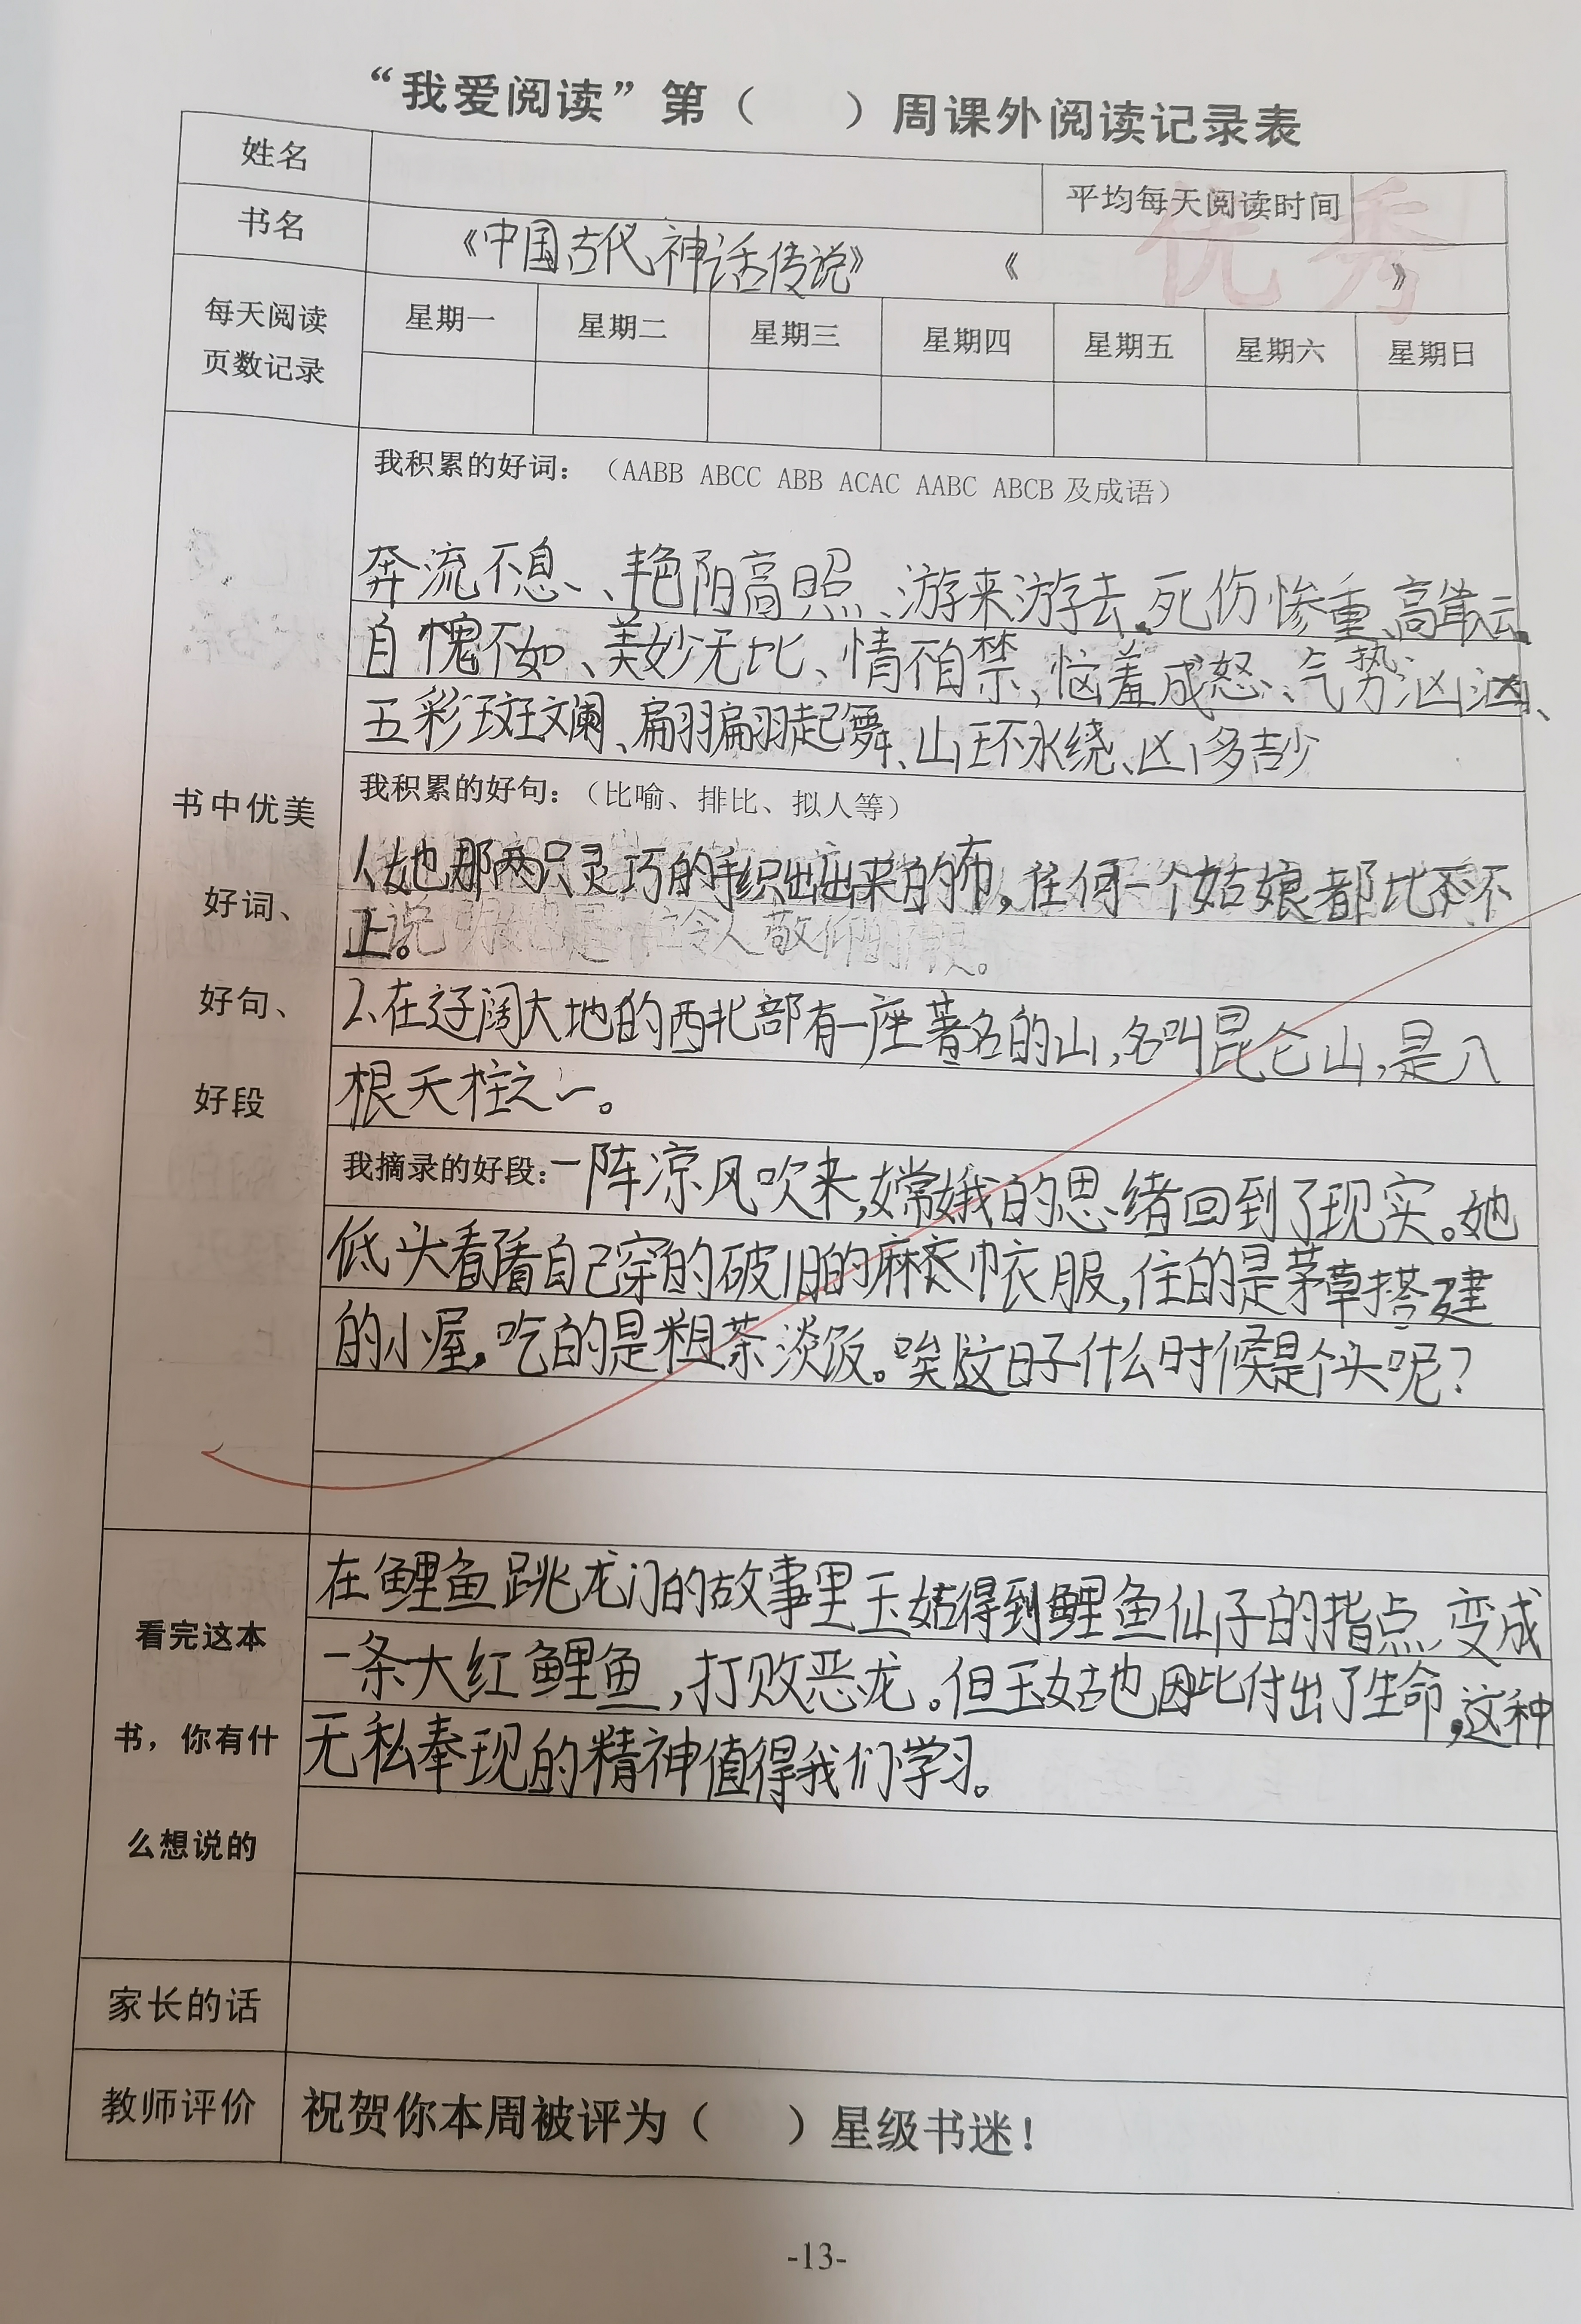 “我爱阅读”第（ ）周课外阅读记录表
姓名
平均每天阅读时间
优秀
书名
《中国古代神话传说》 《 》
每天阅读
页数记录
星期一 星期二 星期三 星期四 星期五 星期六 星期日
我积累的好词：（AABB ABCC ABB ACAC AABC ABCB 及成语）
奔流不息、艳阳高照、游来游去、死伤惨重、高耸入云、
自愧不如、美妙无比、情不自禁、恼羞成怒、气势汹汹、
五彩斑斓、翩翩起舞、山环水绕、凶多吉少
书中优美
好词、
好句、
好段
我积累的好句：（比喻、排比、拟人等）
1、她那两只灵巧的手织出来的布，任何一个姑娘都比不
上。
2、在辽阔大地的西北部有一座著名的山，名叫昆仑山，是八
根天柱之一。
我摘录的好段：一阵凉风吹来，嫦娥的思绪回到了现实。她
低头看看自己穿的破旧的麻布衣服，住的是茅草搭建
的小屋，吃的是粗茶淡饭。唉这日子什么时候是个头呢？
看完这本
书，你有什
么想说的
在鲤鱼跳龙门的故事里玉姑得到鲤鱼仙子的指点，变成
一条大红鲤鱼，打败恶龙。但玉姑也因此付出了生命，这种
无私奉现的精神值得我们学习。
家长的话
教师评价
祝贺你本周被评为（ ）星级书迷！
-13-